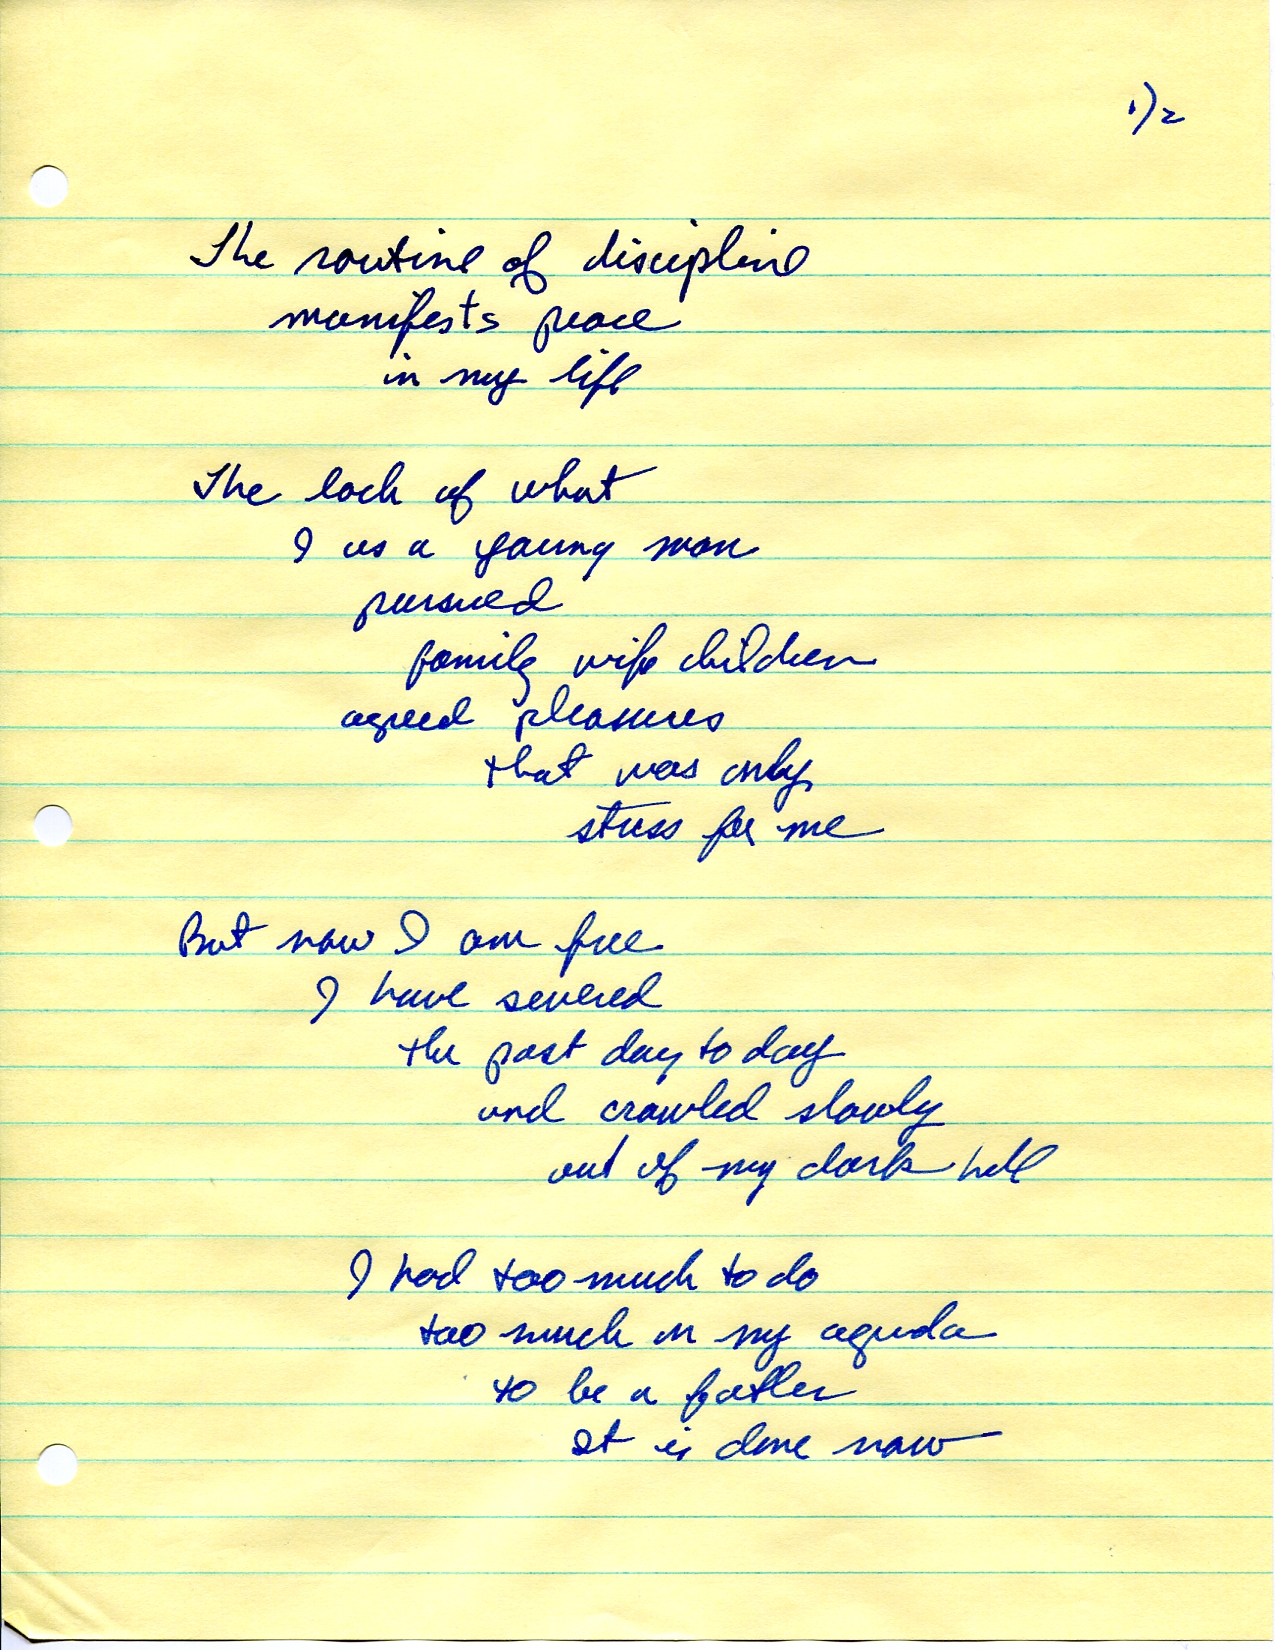 1)2
The routine of discipline
manifests peace
in my life
The lack of what
I as a young man
pursued
family wife children
agreed pleasures
that was only
stress for me
But now I am free
I have severed
the past day to day
and crawled slowly
out of my dark hell
I had too much to do
too much on my agenda
to be a father
It is done now